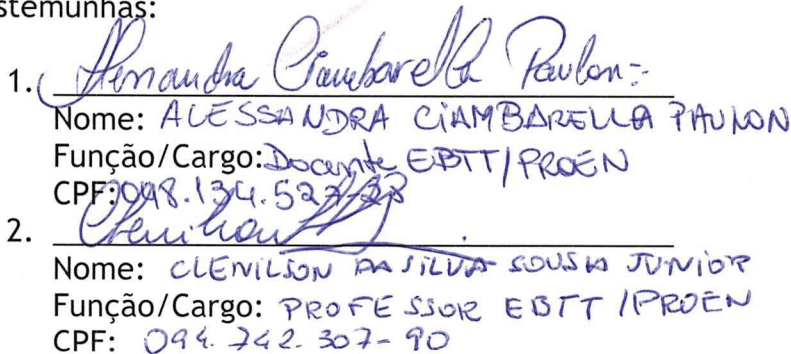 stemunhas:
1. Alessandra Ciambarella Paulon
Nome: ALESSANDRA CIAMBARELLA PAULON
Função/Cargo: Docente EBTT/PROEN
CPF: 098.134.527-28
2. Clenilson
Nome: CLENILSON DA SILVA SOUSA JUNIOR
Função/Cargo: PROFESSOR EBTT /PROEN
CPF: 094.742.307-90